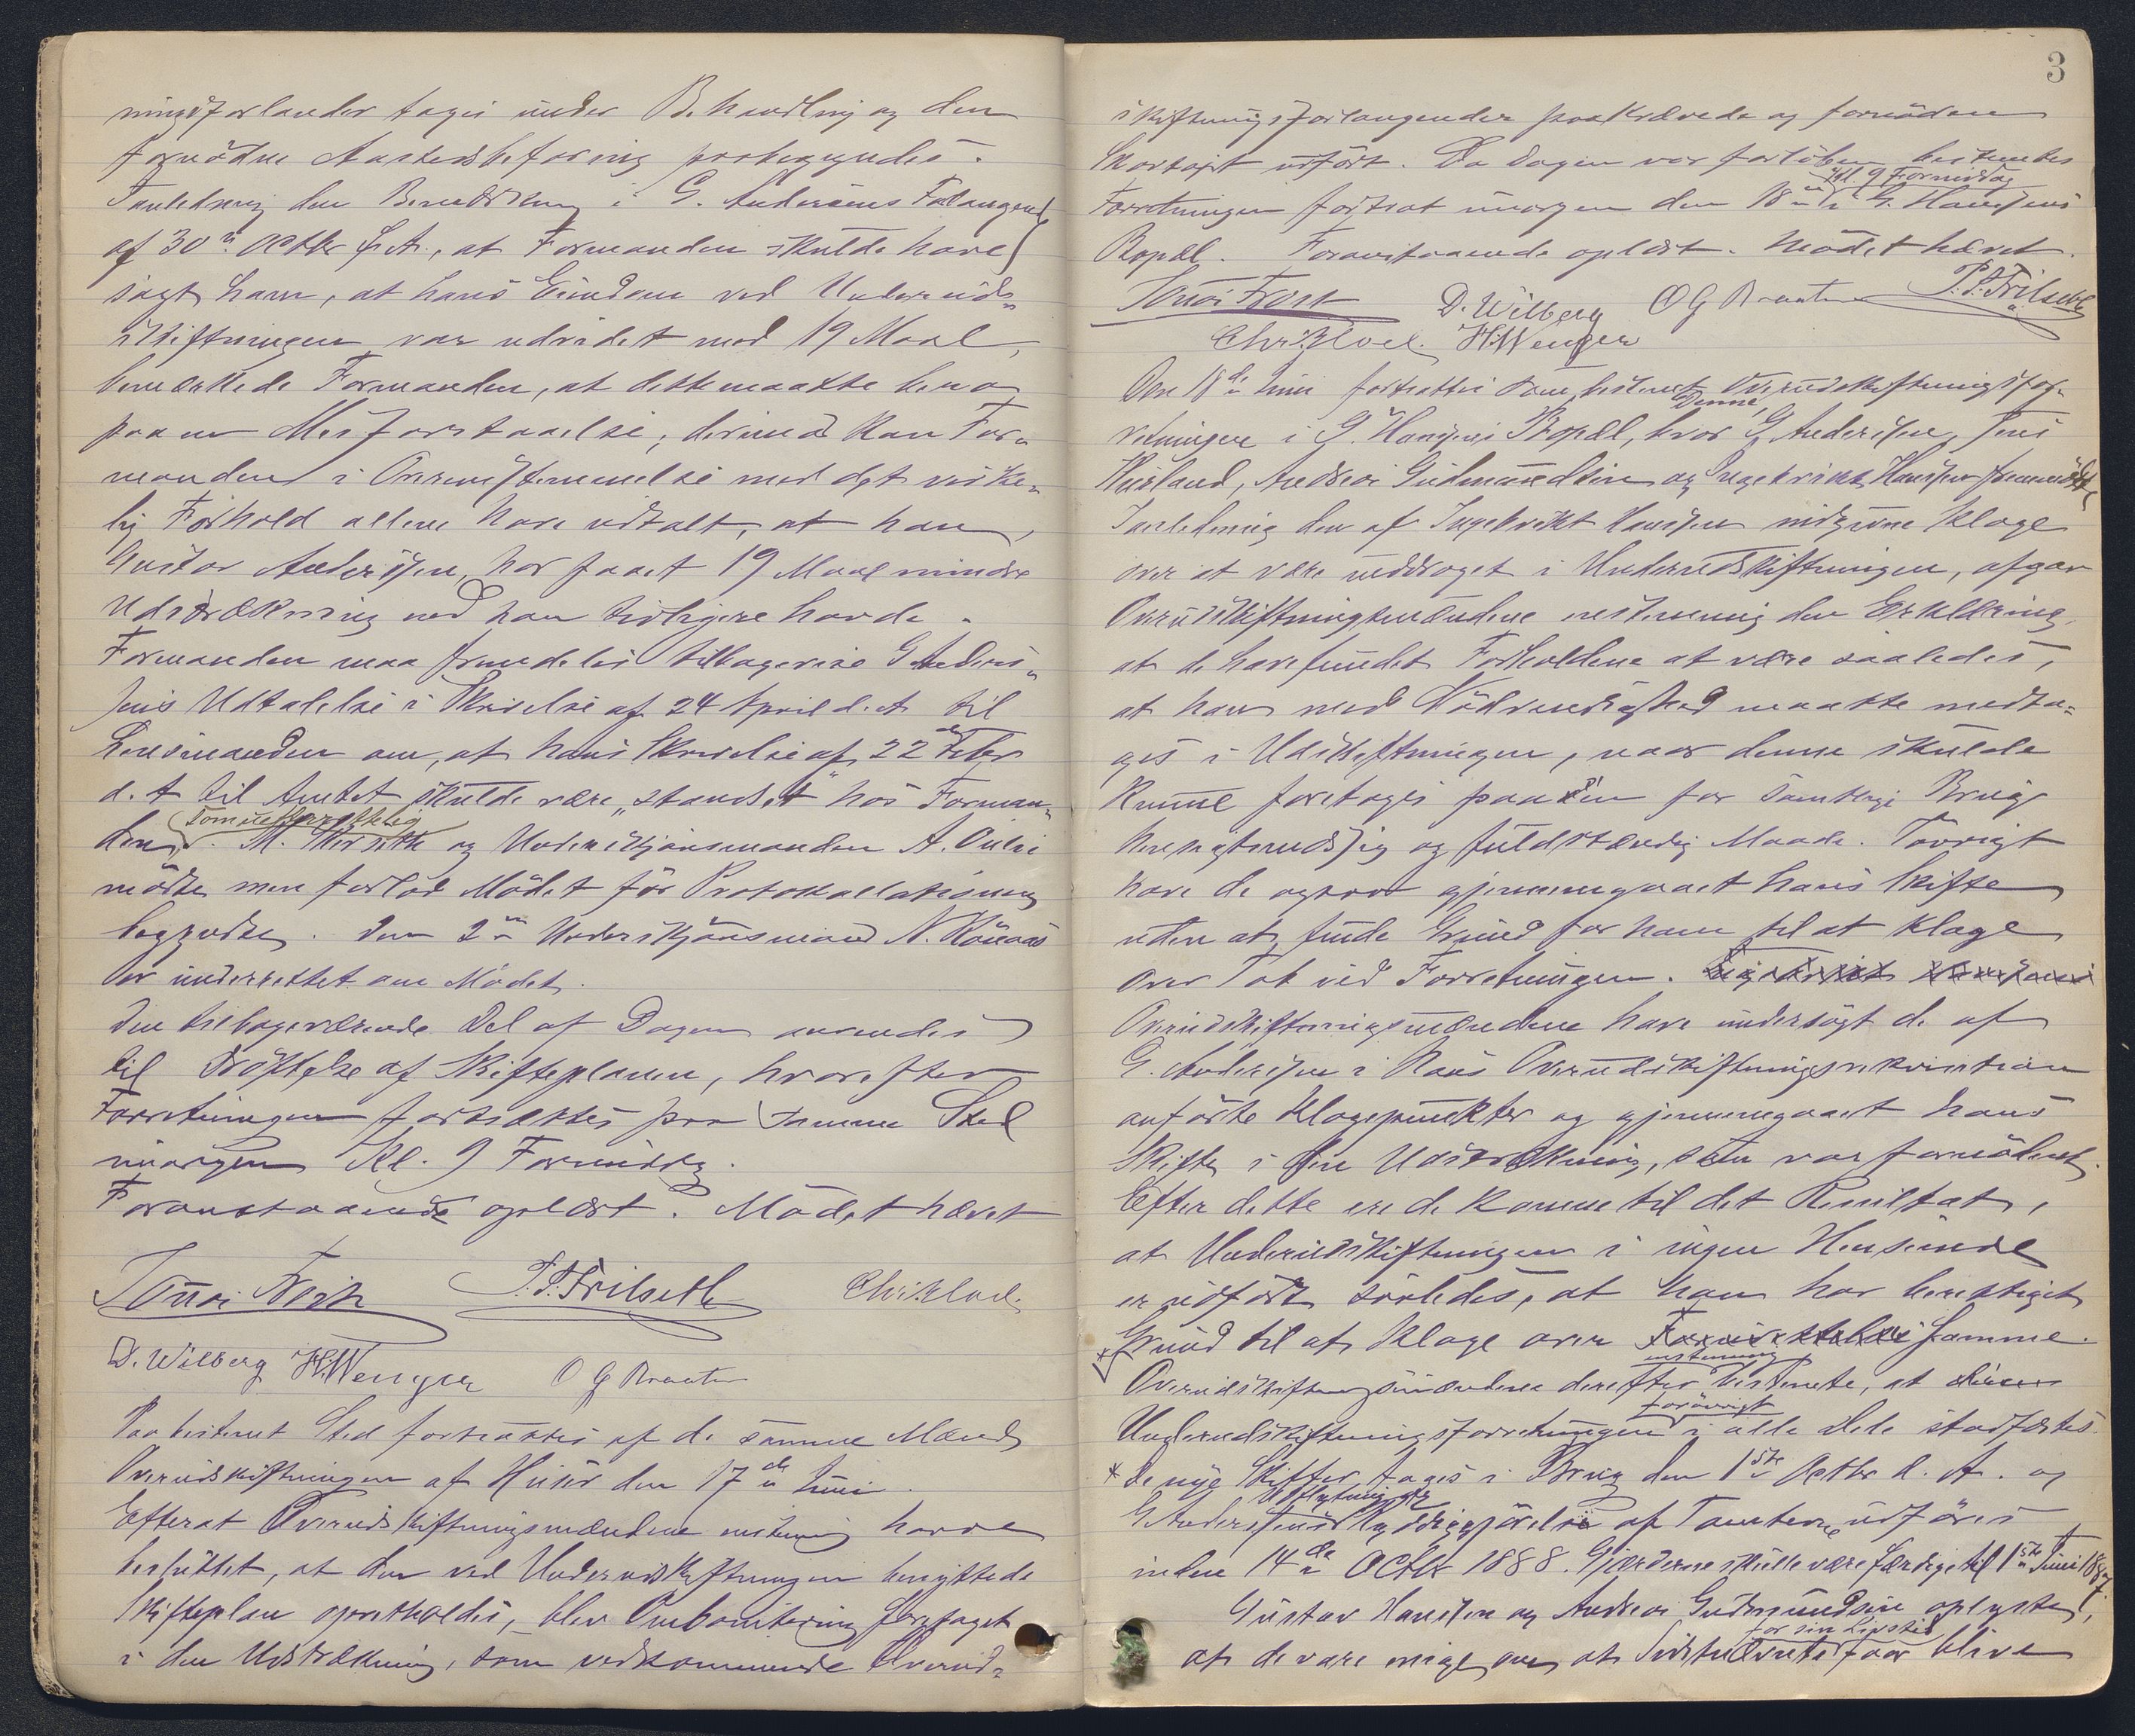 ningsforlander toges under Behandling og den
fornødne Aastedsbefaring paabegyndtes.
I anledning den Bemærkning i G. Andersens Forlangende
af 30te Octbr f. A., at Formanden skulde have
sagt ham, at hans Eiendom ved Underuds-
skiftningen var udvidet med 19 Maal,
bemærkede Formanden, at dette maatte bero
paa en Misforstaaelse; derimod kan For-
manden i Overensstemmelse med det virke-
lig Forhold allene have udtalt, at han,
Gustav Andersen, har faaet 19 Maal mindre
Udstrækning end han tidligere havde.
Formanden maa fremdeles tilbagevise G Anders-
sens Udtalelse i Skrivelse af 24 April d. A. til
Lensmanden om, at hans Skrivelse af 22de Febr
d. A til Amtet skulde være "standset" hos Forman-
den. M. og Underskjønsmanden A.
mødte men forlod Mødet før Protokollationen
begyndte. Den 2den Underskjønsmand N.
er underrettet om Mødet.
Den tilbageværende Del af Dagen anvendes
til Drøftelse af Skifteplanen, hvorefter
Forretningen fortsættes paa samme Sted
imorgen Kl. 9 Formiddag.
Foranstaaende oplæst. Mødet hævet
P. P. Frilseth Chr. Kloed
D. Wilberg H. Wenger O G Braaten
Paa bestemt Sted fortsattes af de samme Mænd
Overudskiftningen af Huser den 17de Juni.
Efterat Overudskiftningsmændene enstemmig havde
besluttet, at den ved Underudskiftningen benyttede
Skifteplan opretholdes, blev Ombonitering foretaget
i den Udstrækning, som vedkommende Overud-
3
skiftningsforlangender paakrævede og fornøden
Skortogt udført. Da Dagen var forløben bestemtes
Kl. 9 Formiddag
Forretningen fortsat imorgen den 18de i G. Hansens
Bopæl. Foranstaaende oplæst. Mødet hævet.
D. Wilberg O G Braaten P. P. Frilseth
Chr. Kloed. H. Wenger
Den 18de Juni fortsattes som bestemt Overudskiftningsfor-
retningen i G. Hansens Bopæl, hvor G. Andersen, Jens
Husland, Andreas Gudmundsen og Ingebrikt Hansen fremmødte
I anledning den af Ingebrikt Hansen indgivne Klage
over at være inddraget i Underudskiftningen, afgav
Overudskiftningsmændene enstemmig den Erklæring,
at de have fundet Forholdene at være saaledes,
at han med Nødvendighed maatte medta-
ges i Udskiftningen, naar denne skulde
kunne foretages paa en for samtlige Brug
hensigtsmæssig og fuldstændig Maade. Iøvrigt
have de ogsaa gjennemgaaet hans Skifte
uden at finde Grund for ham til at klage
over Tab ved Forretningen.
Overudskiftningsmændene have undersøgt de af
G. Andersen i hans Overudskiftningsrekvisition
anførte Klagepunkter og gjennemgaaet hans
Skifte i den Udstrækning, som var fornødent.
Efter dette ere de komne til det Resultat,
at Underudskiftningen i ingen Henseende
er udført saaledes, at han har berettiget
Grund til at klage over samme.
enstemmig
Overudskiftningsmændene derefter bestemte, at
forøvrigt
Underudskiftningsforretningen i alle Dele stadfæstes.
* De nye Skifter tages i Brug den 1ste Octbr d. A. og
Udflytning og
G Anderssens Ryddiggjørelse af Tomterne udføres
inden 14de Octbr 1888. Gjærderne skulle være færdige til 1ste Juni 1887.
Gustav Hansen og Andreas Gudmundsen oplyste,
for sin Livstid
at de vare enige om, at Sidstnævnte faar blive